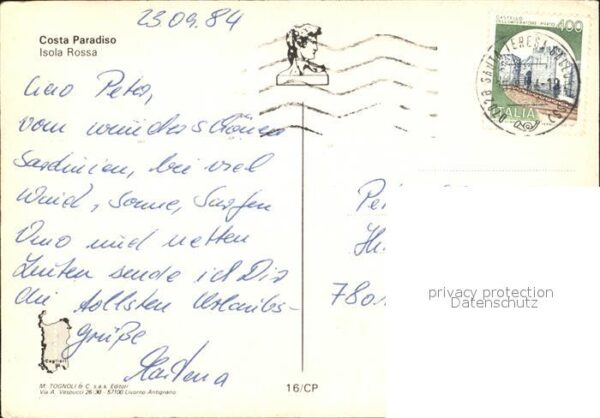 23.09.84
Costa Paradiso
Isola Rossa
Ciao Peter,
vom wunderschönen
Sardinien, bei viel
Wind, Sonne, Surfen
und netten
Leuten sende ich Dir
die tollsten Urlaubs-
grüße
Martena
CASTELLO
400
ITALIA
SANTA TERESA
Pet
780
privacy protection
Datenschutz
Cagliari
M. TOGNOLI & C. s.a.s. Editori
Via A. Vespucci 26/30 - 57100 Livorno Antignano
16/CP